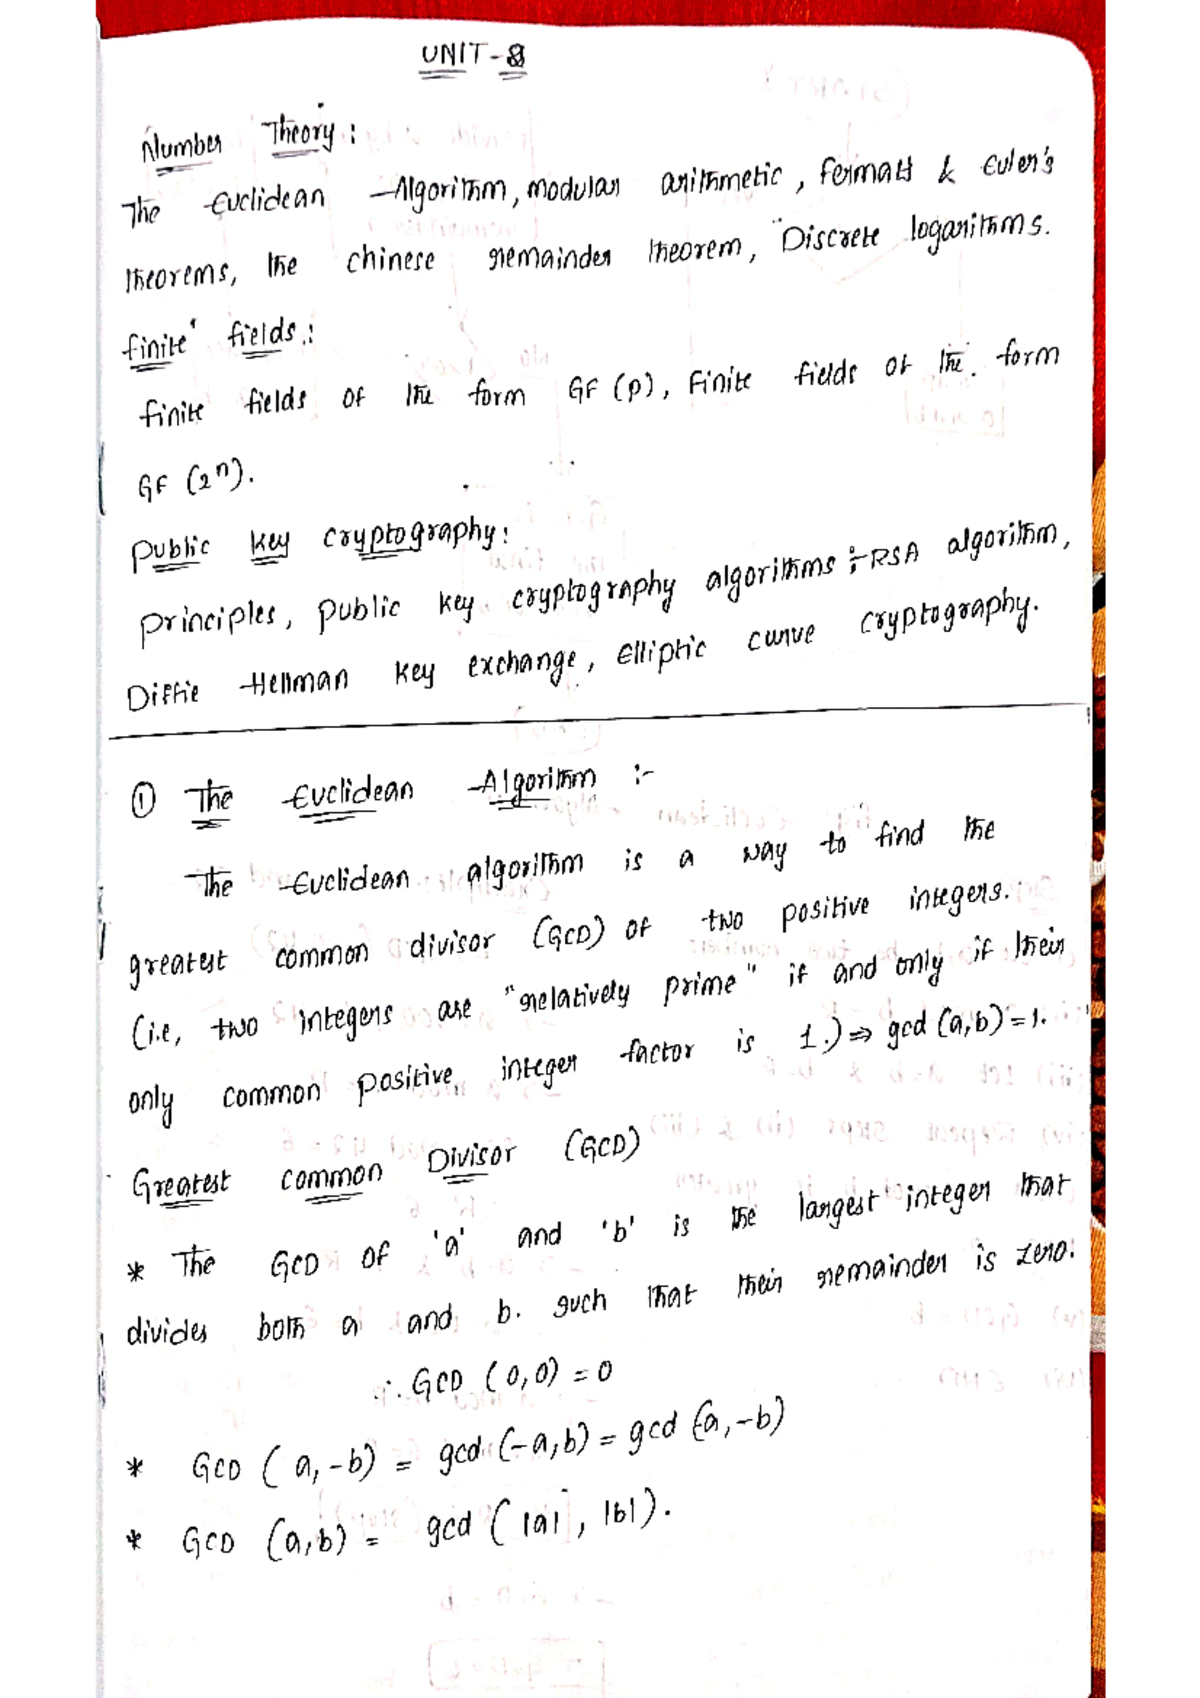 UNIT-8
Number Theory:
The Euclidean Algorithm, modular arithmetic, Fermatt & Euler's
theorems, the chinese remainder theorem, Discrete logarithms.
finite fields:
finite fields of the form GF (p), Finite fields of the form
GF (2ⁿ).
Public key cryptography:
principles, public key cryptography algorithms :- RSA algorithm,
Diffie Hellman key exchange, Elliptic curve cryptography.
① The Euclidean Algorithm :-
The Euclidean algorithm is a way to find the
greatest common divisor (GCD) of two positive integers.
(i.e, two integers are "relatively prime" if and only if their
only common positive integer factor is 1.) ⇒ gcd (a,b) = 1.
Greatest common Divisor (GCD)
* The GCD of 'a' and 'b' is the largest integer that
divides both a and b. such that their remainder is zero.
∴ GCD (0,0) = 0
* GCD (a,-b) = gcd (-a,b) = gcd (-a,-b)
* GCD (a,b) = gcd (|a|, |b|).